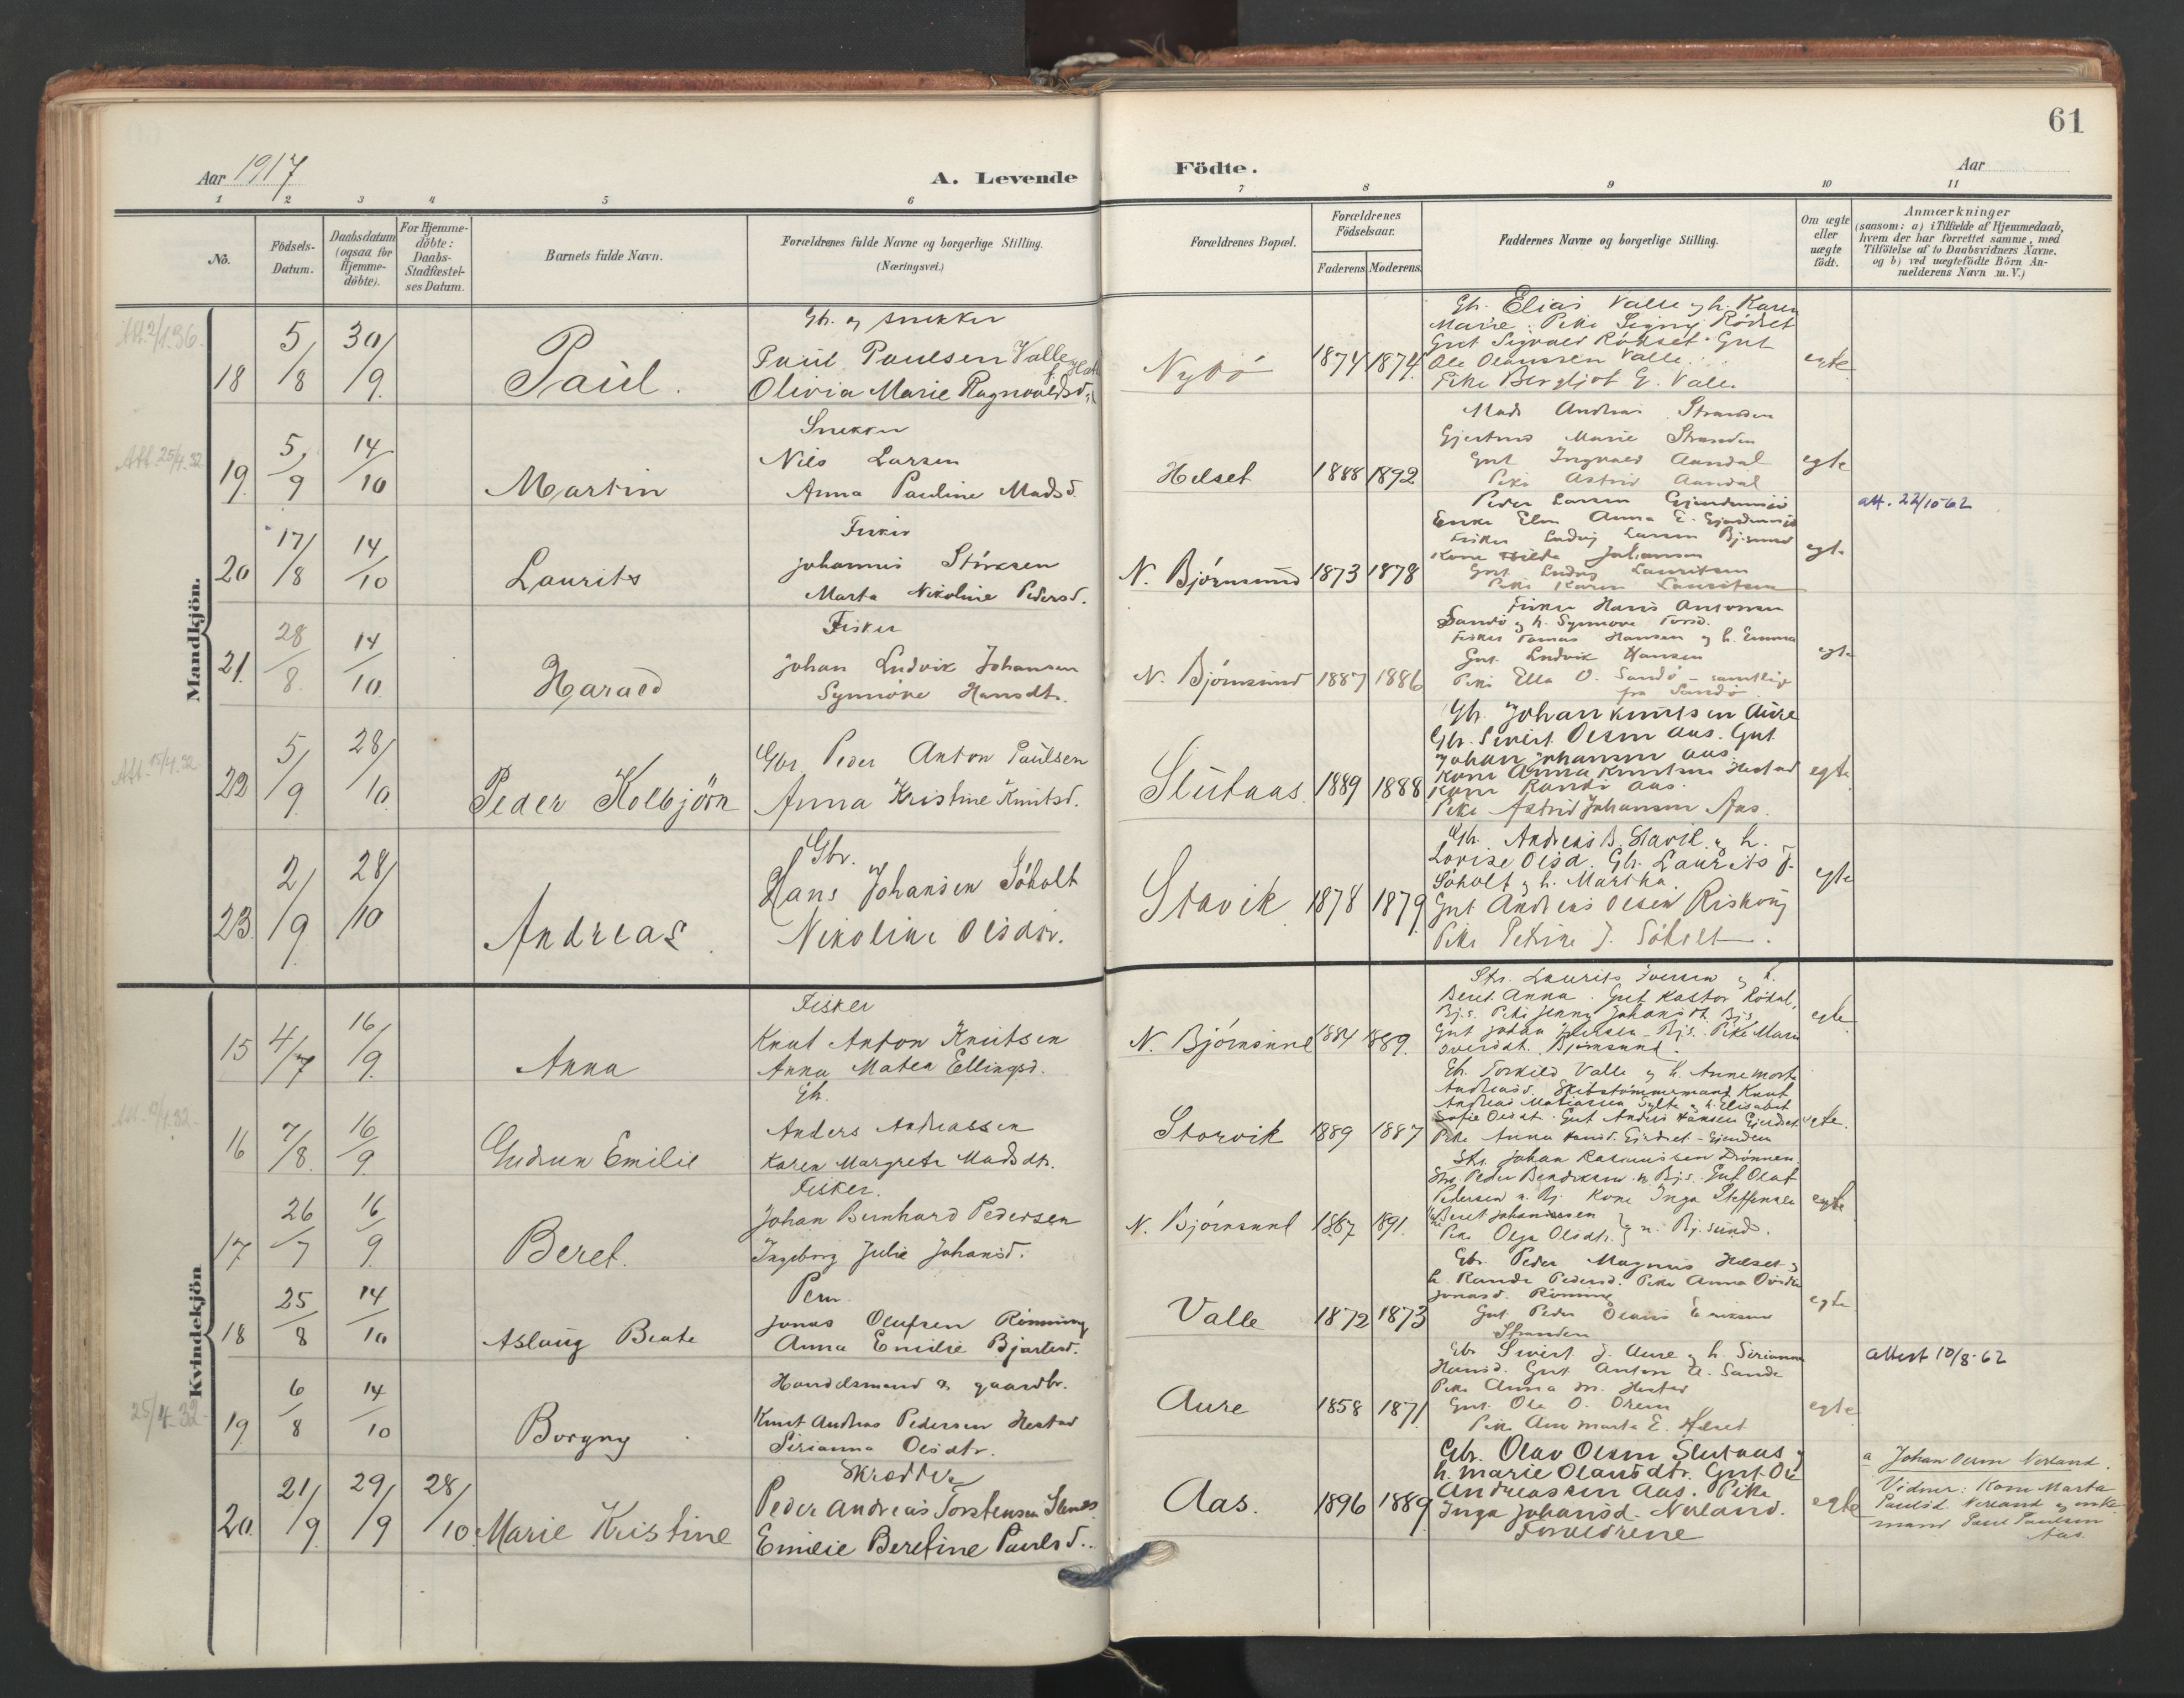 61
Aar 1917
A. Levende
Födte.
Aar
1 2 3 4 5 6 7 8 9 10 11
No.
Födsels-
Datum.
Daabsdatum
(ogsaa for
Hjemme-
döbte).
For Hjemme-
döbte:
Daabs-
Stadfæstel-
ses Datum.
Barnets fulde Navn.
Forældrenes fulde Navne og borgerlige Stilling.
(Næringsvei.)
Forældrenes Bopæl.
Forældrenes
Födselsaar.
Faderens.
Moderens.
Faddernes Navne og borgerlige Stilling.
Om ægte
eller
uægte
födt.
Anmærkninger
(saasom: a) i Tilfælde af Hjemmedaab,
hvem der har forrettet samme, med
Tilföielse af to Daabsvidners Navne.
og b) ved uægtefödte Börn An-
melderens Navn m.V.)
Mandkjön.
18
5/8
30/9
Paul.
Gb. og snekker
Paul Paulsen Valle
Olivia Marie Ragnvaldsd.
Nybö
1874
1874
Gb. Elias Valle og h. Karen
Marie. Pike Signy Rödset
Gut Sigvald Rödset. Gut
Ole Olaussen Valle.
Pike Bergljot G. Valle
egte
Att. 25/4.32
19
5/9
14/10
Martin
Snekker
Nils Larsen
Anna Pauline Madsd.
Helset
1888
1892
Mads Andreas Stranden
Marie Stranden
Gut Ingvald Aandal
Pike Astrid Aandal
egte
att. 22/10-62
20
17/8
14/10
Laurits
Fisker
Johannes
Marta Nikoline Pedersd.
N. Björnsund
1873
1878
Peder Larsen
Enke Elen Anna E.
Fisker Ludvig Larsen
Kone Hilda Johansen
Gut Ludvig Lauritsen
Pike Karen Lauritsen
egte
21
28/8
14/10
Harald
Fisker
Johan Ludvik Johansen
Synnöve Hansdtr.
N. Björnsund
1887
1886
Fisker Hans Antonsen
Sandö og h. Synnöve
Fisker Tomas Hansen og h. Emma
Gut Ludvik Hansen
Pike Ella O. Sandö - samtlige
fra Sandö
egte
Att. 15/4.32
22
5/9
28/10
Peder Kolbjörn
Gbr. Peder Anton Paulsen
Anna Kristine Knutsd.
Slutaas
1889
1888
Gb. Johan Knutsen Aure
Gbr. Sivert Olsen Aas. Gut
Johan Johansen Aas.
Kone Anna Knutsen Hestad
Kone Randi Aas.
Pike Astrid Johansen Aas.
egte
23
2/9
28/10
Andreas.
Gbr.
Hans Johansen Söholt
Nikoline Olsdtr.
Stavik
1878
1879
Gb. Andreas B. Stavik og h.
Lovise Olsd. Gb. Laurits J.
Söholt og h. Martha.
Gut Andreas Olsen
Pike Petrine J. Söholt.
egte
Kvindekjön
15
4/7
16/9
Anna
Fisker
Knut Anton Knutsen
Anna Matea Ellingsd.
N. Björnsund
1884
1889
Str. Laurits Iversen og h.
Beret Anna. Gut Kastor Rökal,
Bjs. Pike Jenny Johansdt. Bjs
Gut Johan Iversen - Bjs. Pike Marie
Björnsund.
egte
16
7/8
16/9
Gudrun Emilie
Gb.
Anders Andreassen
Karen Margrete Madsdtr.
Storvik
1889
1887
Gb. Torkild Valle og h. Anne Marta
Andreasd. Skibstömmermand Knut
Andreas Mathiassen Sylte og h. Elisabet
Sofie Olsdt. Gut Anders Hansen
Pike Anna Hansd.
egte.
17
26/7
16/9
Beret.
Fisker.
Johan Bernhard Pedersen
Ingeborg Julie Johansd.
N. Björnsund
1887
1891.
Str. Johan Rasmussen Drönnen
Str. Peder Bendiksen n. Bjs. Gut Olaf
Pedersen n. Bj. Kone Inga Steffensen
Beret Johannessen
Pike Olga Olsdt. } n. Bj.sund.
egte
18
25/8
14/10
Aslaug Beate
Pens.
Jonas Olufsen Rönning
Anna Emilie Bjartesd.
Valle
1872
1873
Gbr. Peder Magnus Helset og
h. Randi Pedersd. Pike Anna
Jonasd. Rönning
Gut Peder Olaus Eriksen
Stranden
egte
25/4.32
19
6/8
14/10
Borgny
Handelsmand og gaardbr.
Knut Andreas Pedersen Hestad
Sirianna Olsdtr.
Aure
1858
1871
Gbr. Sivert J. Aure og h. Sirianna
Hansd. Gut Anton A. Sande
Pike Anna M. Hestad
Gut. Ole O. Orem
Pike Ane Marta E. Helset
egte
attest 10/8-62
20
21/9
29/9
28/10
Marie Kristine
Skrædder
Peder Andreas Torstensen
Emelie Beretine Paulsd.
Aas.
1896
1889
Gbr. Olav Olsen Slutaas og
h. Marie Olausdtr. Gut Ole
Andreassen Aas. Pike
Inga Johansd. Nerland.
Foreldrene
egte
a Johan Olsen Nerland.
Vidner: Kone Marta
Paulsd. Nerland og enke-
mand Paul Paulsen
Aas.